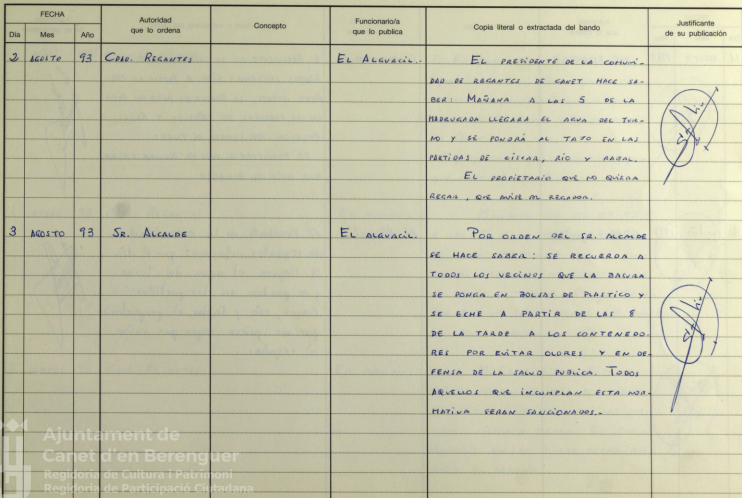 FECHA
Día Mes Año
Autoridad
que lo ordena
Concepto
Funcionario/a
que lo publica
Copia literal o extractada del bando
Justificante
de su publicación
2 AGOSTO 93 CDAD. REGANTES EL ALGUACIL.-
EL PRESIDENTE DE LA COMUNI-
DAD DE REGANTES DE CANET HACE SA-
BER: MAÑANA A LAS 5 DE LA
MADRUGADA LLEGARÁ EL AGUA DEL TUR-
NO Y SE PONDRÁ AL TAJO EN LAS
PARTIDAS DE GISCAR, RIO Y RABAL.
EL PROPIETARIO QUE NO QUIERA
REGAR, QUE AVISE AL REGADOR.
3 AGOSTO 93 SR. ALCALDE EL ALGUACIL.
POR ORDEN DEL SR. ALCALDE
SE HACE SABER: SE RECUERDA A
TODOS LOS VECINOS QUE LA BASURA
SE PONGA EN BOLSAS DE PLASTICO Y
SE ECHE A PARTIR DE LAS 8
DE LA TARDE A LOS CONTENEDO-
RES POR EVITAR OLORES Y EN DE-
FENSA DE LA SALUD PUBLICA. TODOS
AQUELLOS QUE INCUMPLAN ESTA NOR-
MATIVA SERAN SANCIONADOS.-
Ajuntament de
Canet d'en Berenguer
Regidoria de Cultura i Patrimoni
Regidoria de Participació Ciutadana